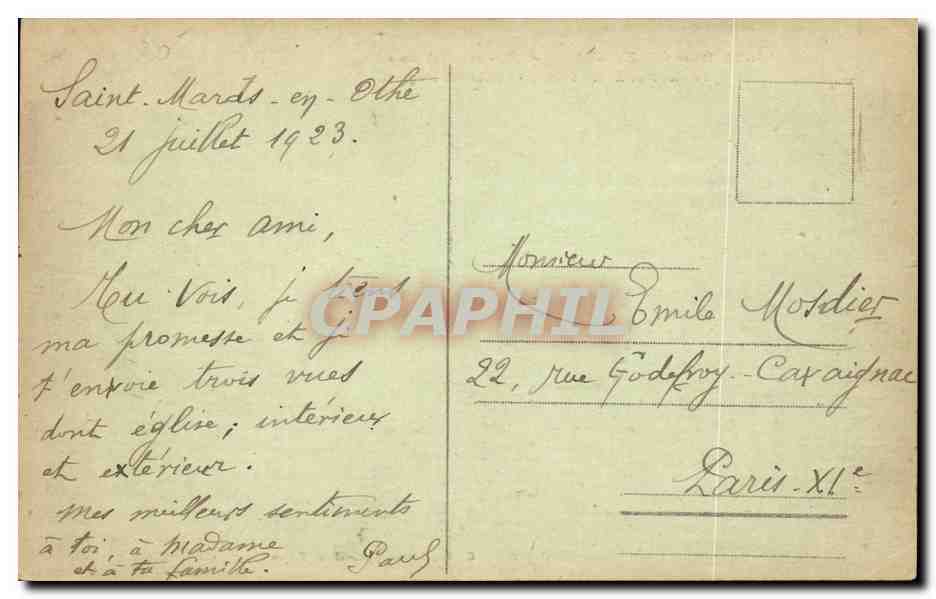 Saint-Mards-en-Othe
21 juillet 1923.
Mon cher ami,
Tu vois, je tiens
ma promesse et je
t'envoie trois vues
dont église; intérieur
et extérieur.
Mes meilleurs sentiments
à toi, à Madame
et à ta famille.
Paul
Monsieur
Emile Mosdier
22, rue Godefroy-Cavaignac
Paris-XIe
CPAPHIL